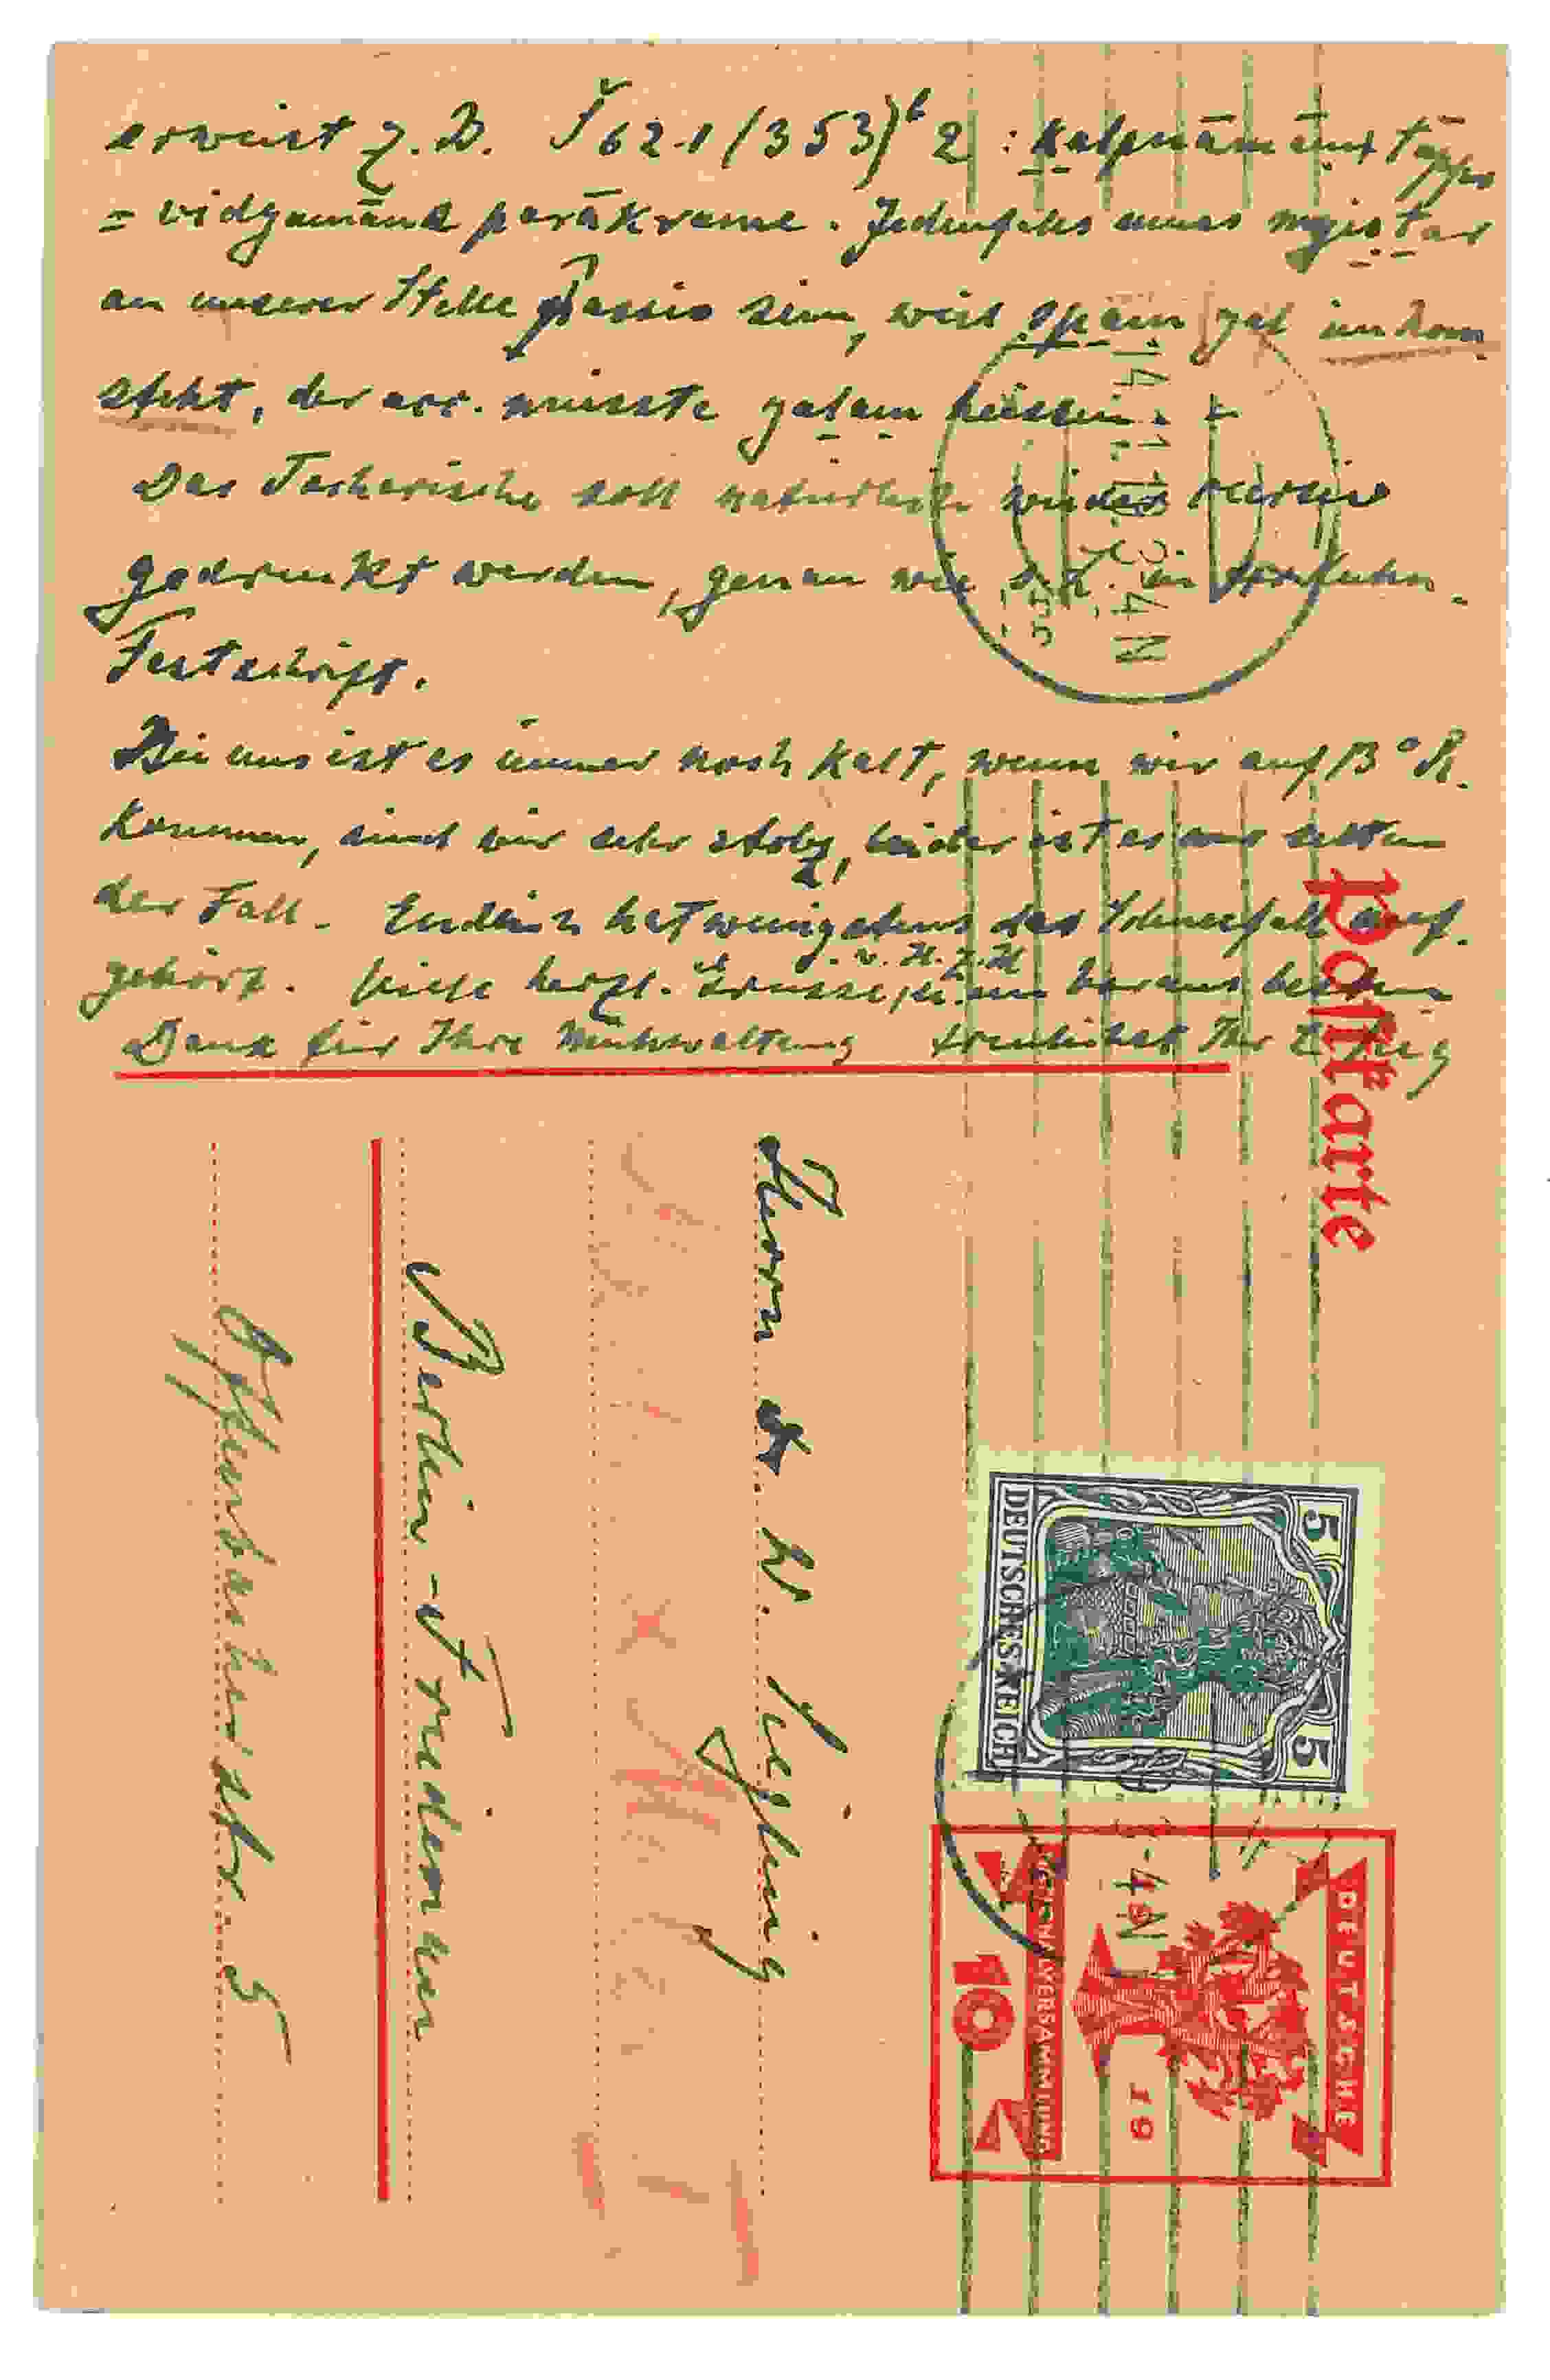 erweist z. B. Š 621 (353)b 2 : kalpnāmāṃ
= vidyamāna parākrame. Jedenfalls muss
an unserer Stelle Passiv sein, weil yal im Nom
steht, der acc. müsste yalam heissen.
Das Tocharische soll natürlich wieder kursiv
gedruckt werden, genau wie s. Z. in
Festschrift.
Bei uns ist es immer noch kalt, wenn wir auf 13° R.
kommen, sind wir sehr stolz, leider ist es nur selten
der Fall. Endlich hat wenigstens der Schneefall auf-
gehört. Viele herzl. Grüsse, v. H. z. H. im voraus besten
Dank für Ihre Mühwaltung treulichst Ihr E. Sieg
Postkarte
Herrn Dr. W. Siegling
Berlin-Friedenau
Offenbacherstr. 5
DEUTSCHES REICH
5 5
DEUTSCHE
19
NATIONALVERSAMMLUNG
10
3-4N